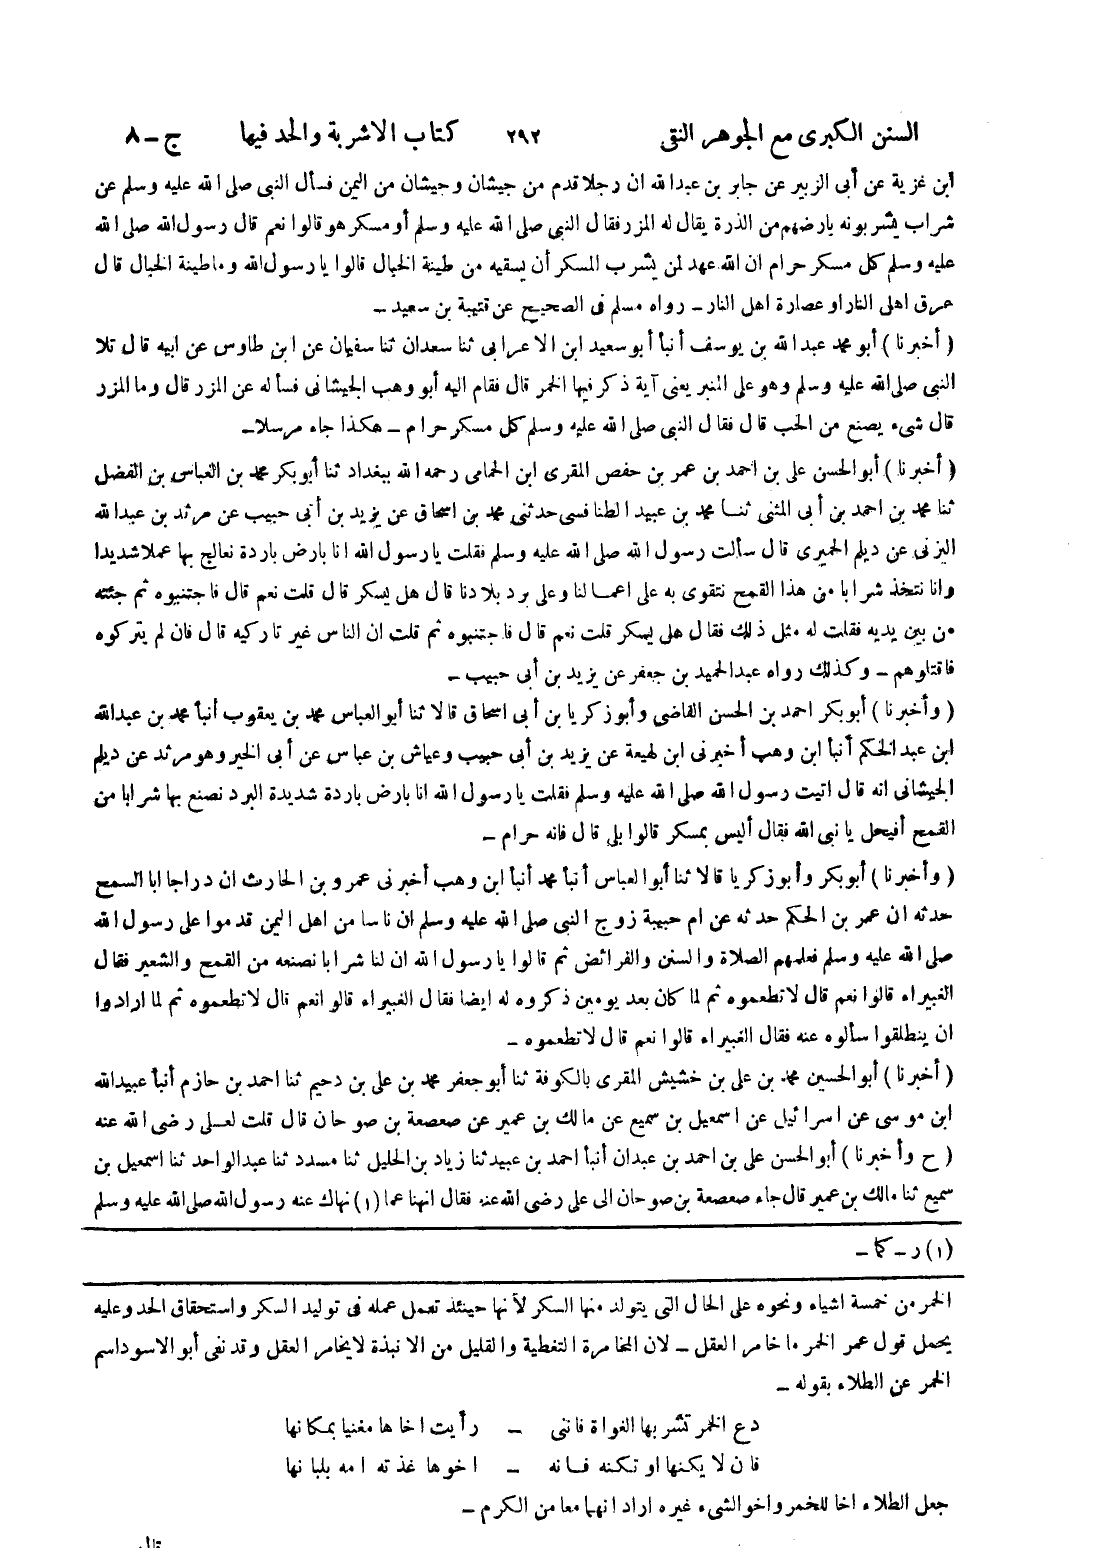 السنن الكبرى مع الجوهر النقى ٢٩٢ كتاب الاشربة والحد فيها ج – ٨
ابن غزية عن أبى الزبير عن جابر بن عبدالله ان رجلا قدم من جيشان وجيشان من اليمن فسأل النبى صلى الله عليه وسلم عن
شراب يشربونه بارضهم من الذرة يقال له المزر فقال النبى صلى الله عليه وسلم أو مسكر هو قالوا نعم قال رسول الله صلى الله
عليه وسلم كل مسكر حرام ان الله عهد لمن يشرب المسكر أن يسقيه من طينة الخبال قالوا يا رسول الله وماطينة الخبال قال
عرق اهل النار او عصارة اهل النار – رواه مسلم فى الصحيح عن قتيبة بن سعيد –
( أخبرنا ) أبو محمد عبدالله بن يوسف أنبأ أبو سعيد ابن الاعرابى ثنا سعدان ثنا سفيان عن ابن طاوس عن ابيه قال تلا
النبى صلى الله عليه وسلم وهو على المنبر يعنى آية ذكر فيها الخمر قال فقام اليه أبو وهب الجيشانى فسأله عن المزر قال وما المزر
قال شىء يصنع من الحب قال فقال النبى صلى الله عليه وسلم كل مسكر حرام – هكذا جاء مرسلا–
( أخبرنا ) أبو الحسن على بن احمد بن عمر بن حفص المقرى ابن الحمامى رحمه الله ببغداد ثنا أبوبكر محمد بن العباس بن الفضل
ثنا محمد بن احمد بن أبى المثنى ثنا محمد بن عبيد الطنافسى حدثنى محمد بن اسحاق عن يزيد بن أبى حبيب عن مرثد بن عبدالله
اليزنى عن ديلم الحميرى قال سألت رسول الله صلى الله عليه وسلم فقلت يارسول الله انا بارض باردة نعالج بها عملا شديدا
وانا نتخذ شرابا من هذا القمح نتقوى به على اعمالنا وعلى برد بلادنا قال هل يسكر قال قلت نعم قال فاجتنبوه ثم جئته
من بين يديه فقلت له مثل ذلك فقال هل يسكر قلت نعم قال فاجتنبوه ثم قلت ان الناس غير تاركيه قال فان لم يتركوه
فاقتلوهم – وكذلك رواه عبدالحميد بن جعفر عن يزيد بن أبى حبيب –
( وأخبرنا ) أبوبكر احمد بن الحسن القاضى وأبو زكريا بن أبى اسحاق قالا ثنا أبو العباس محمد بن يعقوب أنبأ محمد بن عبدالله
ابن عبد الحكم أنبأ ابن وهب أخبرنى ابن لهيعة عن يزيد بن أبى حبيب وعياش بن عباس عن أبى الخير وهو مرثد عن ديلم
الجيشانى انه قال اتيت رسول الله صلى الله عليه وسلم فقلت يارسول الله انا بارض باردة شديدة البرد نصنع بها شرابا من
القمح أفيحل يا نبى الله فقال أليس بمسكر قالوا بلى قال فانه حرام –
( وأخبرنا ) أبوبكر وأبو زكريا قالا ثنا أبو العباس أنبأ محمد أنبأ ابن وهب أخبرنى عمرو بن الحارث ان دراجا ابا السمح
حدثه ان عمر بن الحكم حدثه عن ام حبيبة زوج النبى صلى الله عليه وسلم ان ناسا من اهل اليمن قدموا على رسول الله
صلى الله عليه وسلم فعلمهم الصلاة والسنن والفرائض ثم قالوا يارسول الله ان لنا شرابا نصنعه من القمح والشعير فقال
الغبيراء قالوا نعم قال لا تطعموه ثم لما كان بعد يومين ذكروه له ايضا فقال الغبيراء قالوا نعم قال لا تطعموه ثم لما ارادوا
ان ينطلقوا سألوه عنه فقال الغبيراء قالوا نعم قال لا تطعموه –
( أخبرنا ) أبو الحسين محمد بن على بن خشيش المقرى بالكوفة ثنا أبو جعفر محمد بن على بن دحيم ثنا احمد بن حازم أنبأ عبيدالله
ابن موسى عن اسرائيل عن اسمعيل بن سميع عن مالك بن عمير عن صعصعة بن صوحان قال قلت لعلى رضى الله عنه
( ح وأخبرنا ) أبو الحسن على بن احمد بن عبدان أنبأ احمد بن عبيد ثنا زياد بن الخليل ثنا مسدد ثنا عبدالواحد ثنا اسمعيل بن
سميع ثنا مالك بن عمير قال جاء صعصعة بن صوحان الى على رضى الله عنه فقال انهنا عما (١) نهاك عنه رسول الله صلى الله عليه وسلم
(١) ر – كما –
الخمر من خمسة اشياء ونحوه على الحال التى يتولد منها السكر لأنها حينئذ تعمل عمله فى توليد السكر واستحقاق الحد وعليه
يحمل قول عمر الخمر ما خامر العقل – لان المخامرة التغطية والقليل من الانبذة لايخامر العقل وقد نفى أبو الاسود اسم
الخمر عن الطلاء بقوله –
دع الخمر تشربها الغواة فاننى – رأيت اخاها مغنيا بمكانها
فان لا يكنها او تكنه فانه – اخوها غذته امه بلبانها
جعل الطلاء اخا للخمر واخو الشىء غيره اراد انهما معا من الكرم –
قال